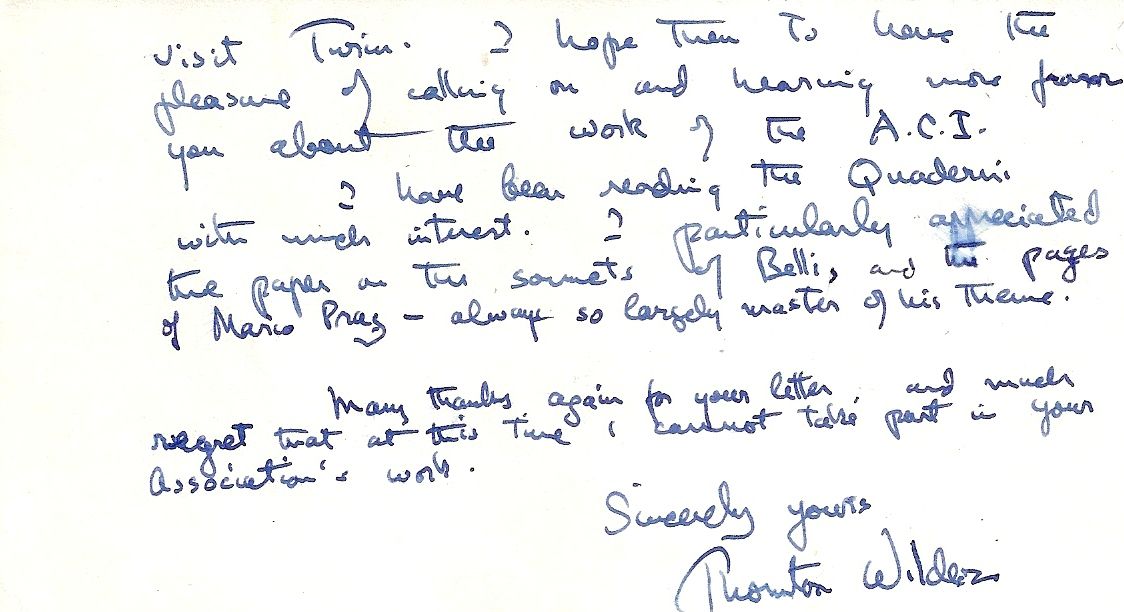 visit Turin. I hope then to have the
pleasure of calling on and hearing more from
you about the work of the A.C.I.
I have been reading the Quaderni
with much interest. I particularly appreciated
the paper on the sonnets of Belli, and the pages
of Mario Praz – always so largely master of his theme.
Many thanks again for your letter and much
regret that at this time I cannot take part in your
Association's work.
Sincerely yours
Thornton Wilder